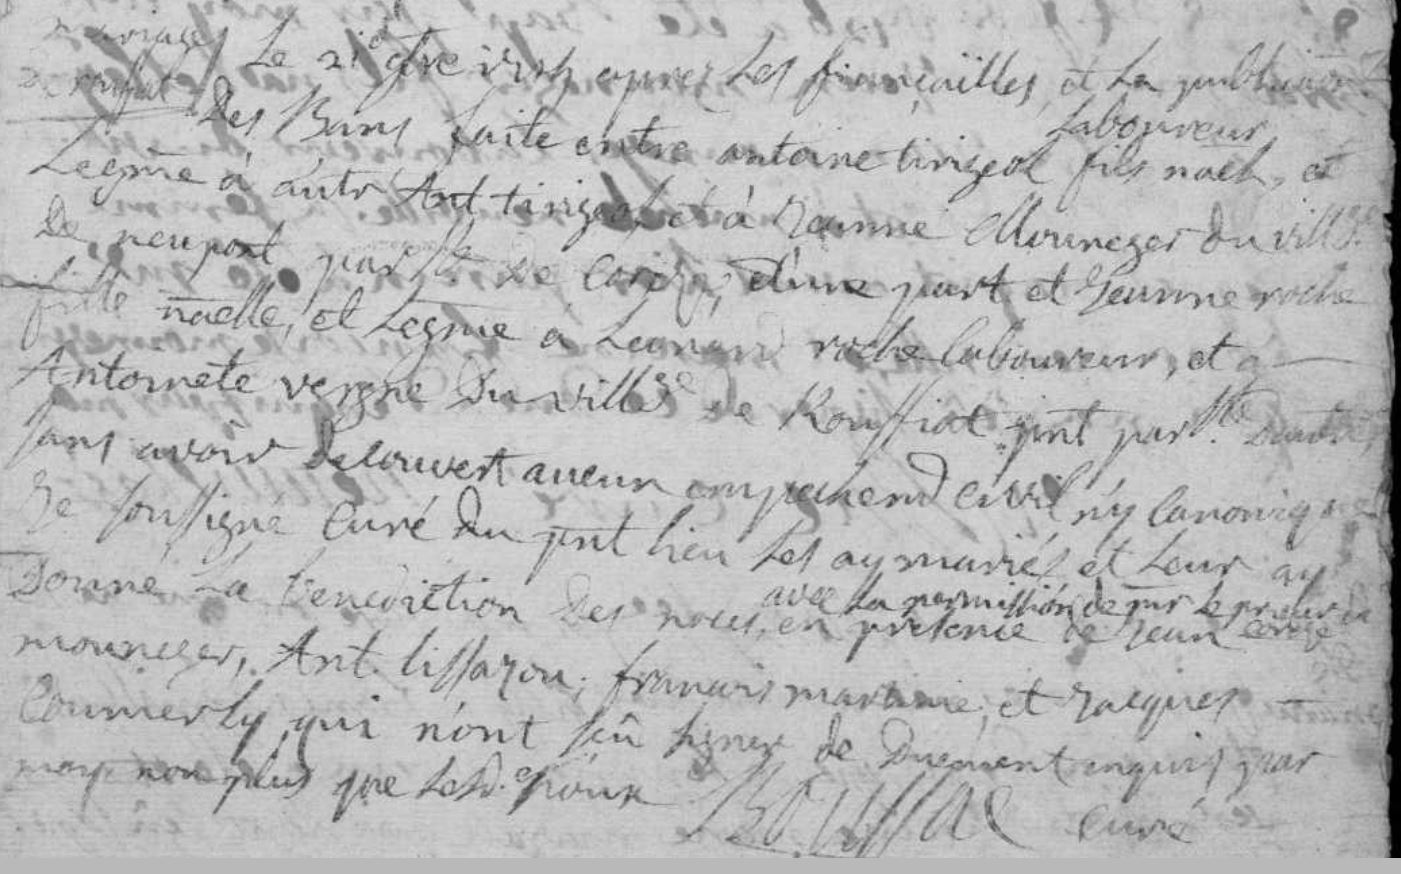 mariage Le 21 apres Les fiançailles et La publication
de roufiat Des Bans faite entre antoine tirigeol Laboureur fils nâel, et
Legme à autr Ant tirigeol et à Jeanne Mouneger du villge
de neupont parsse de d'une part et Jeanne roche
fille naelle, et Legme à Leonard roche laboureur, et a
Antoinete vergne Du villge de Rouffiat pnt parsse Dautre
sans avoir decouvert aucun empechemd civil n'y canonique
Je soussigné Curé du pnt lieu Les ay mariés et Leur ay
Donné La benediction Des noces, avec La permission de mr Le prieur de
en presence de Jean
mouneger, Ant. lissajou, francois martinie, et Jacques
Coumerly qui n'ont sçû signer de Duement enquis par
moy non plus que Lesd. epoux Boussac curé